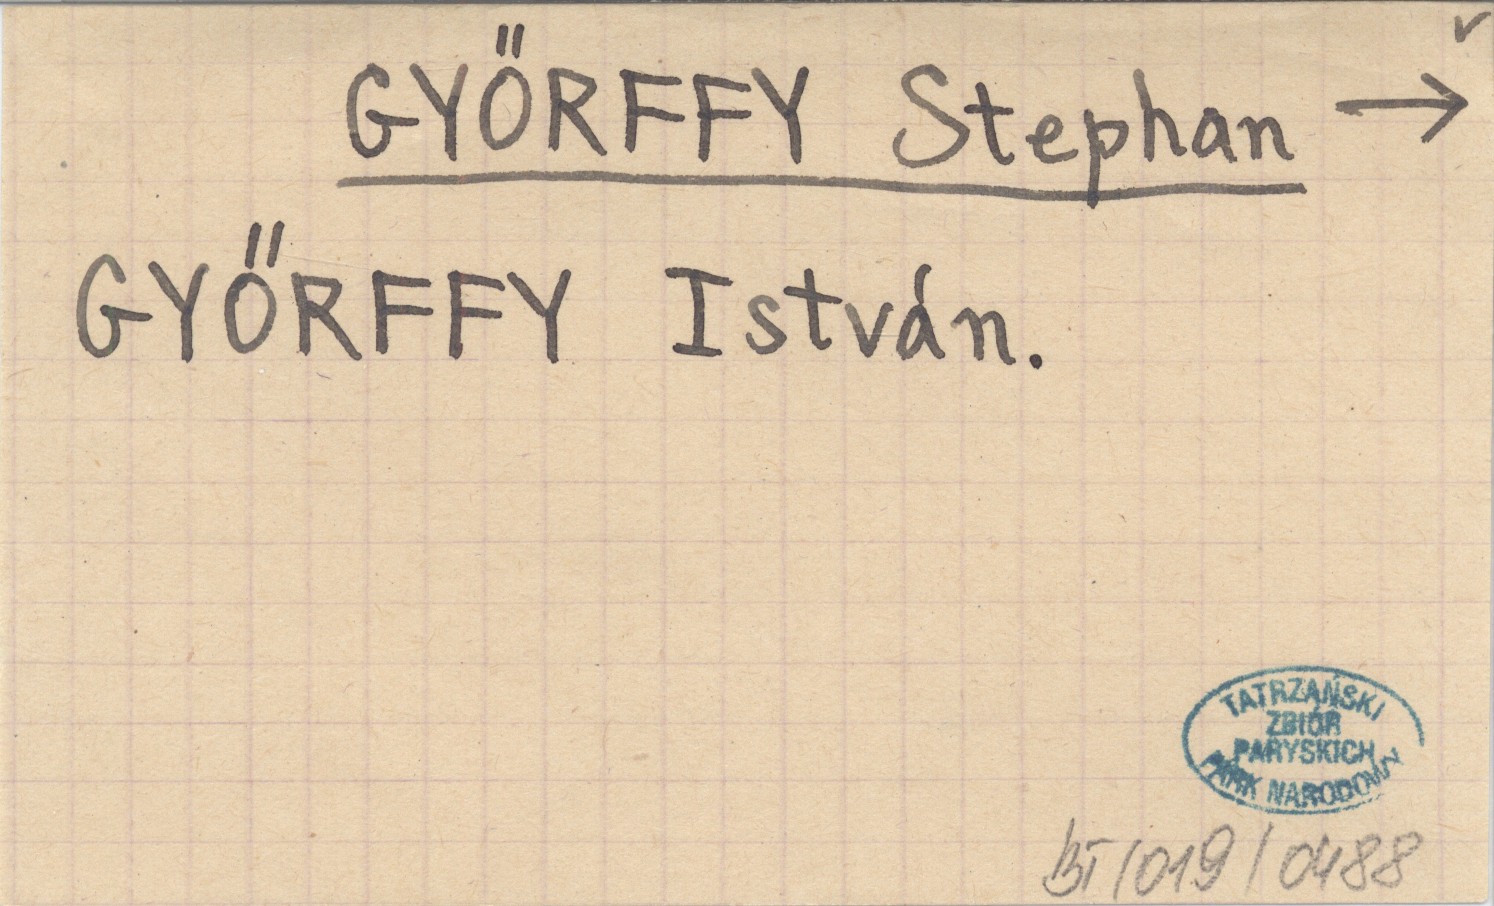 GYŐRFFY Stephan →
GYŐRFFY István.
TATRZAŃSKI
ZBIÓR
PARYSKICH
PARK NARODOWY
BT/019/0488